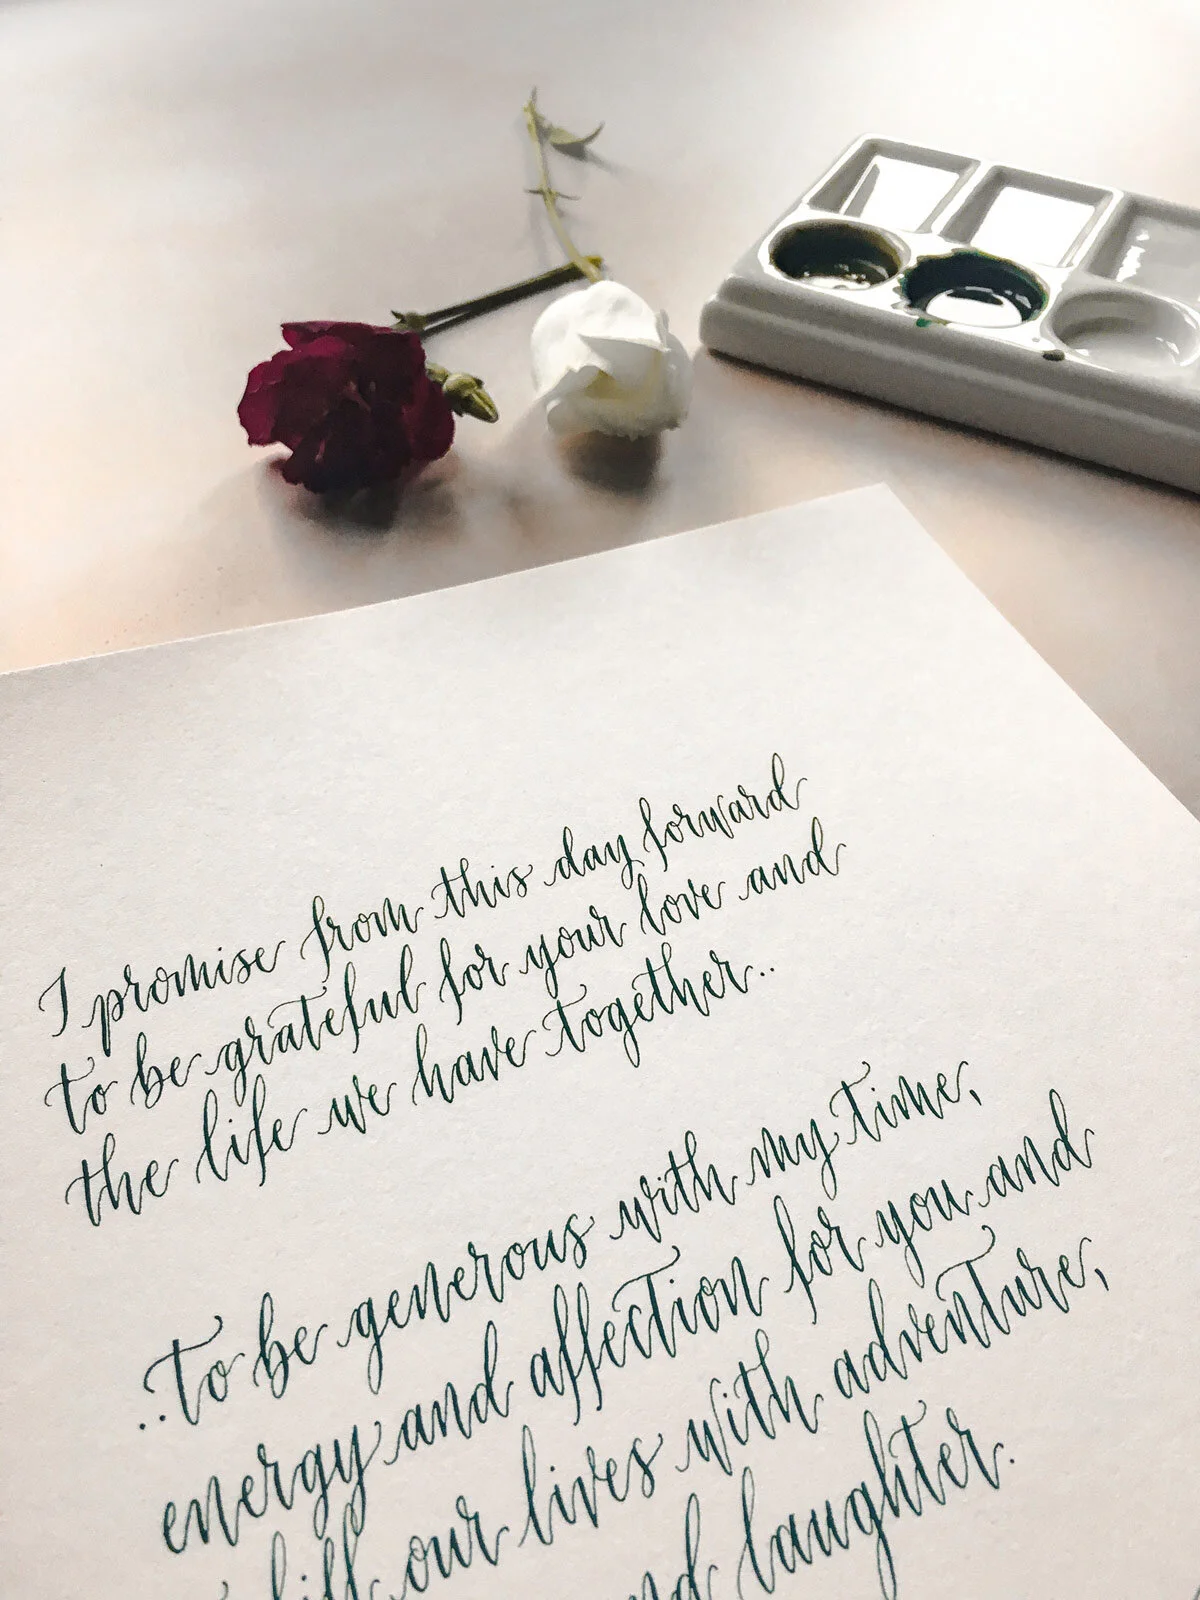 I promise from this day forward
to be grateful for your love and
the life we have together..
..To be generous with my time,
energy and affection for you and
our lives with adventure,
laughter.